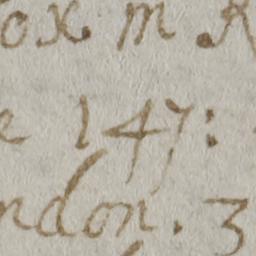 ox. m. R
e 147:
ndon. 3